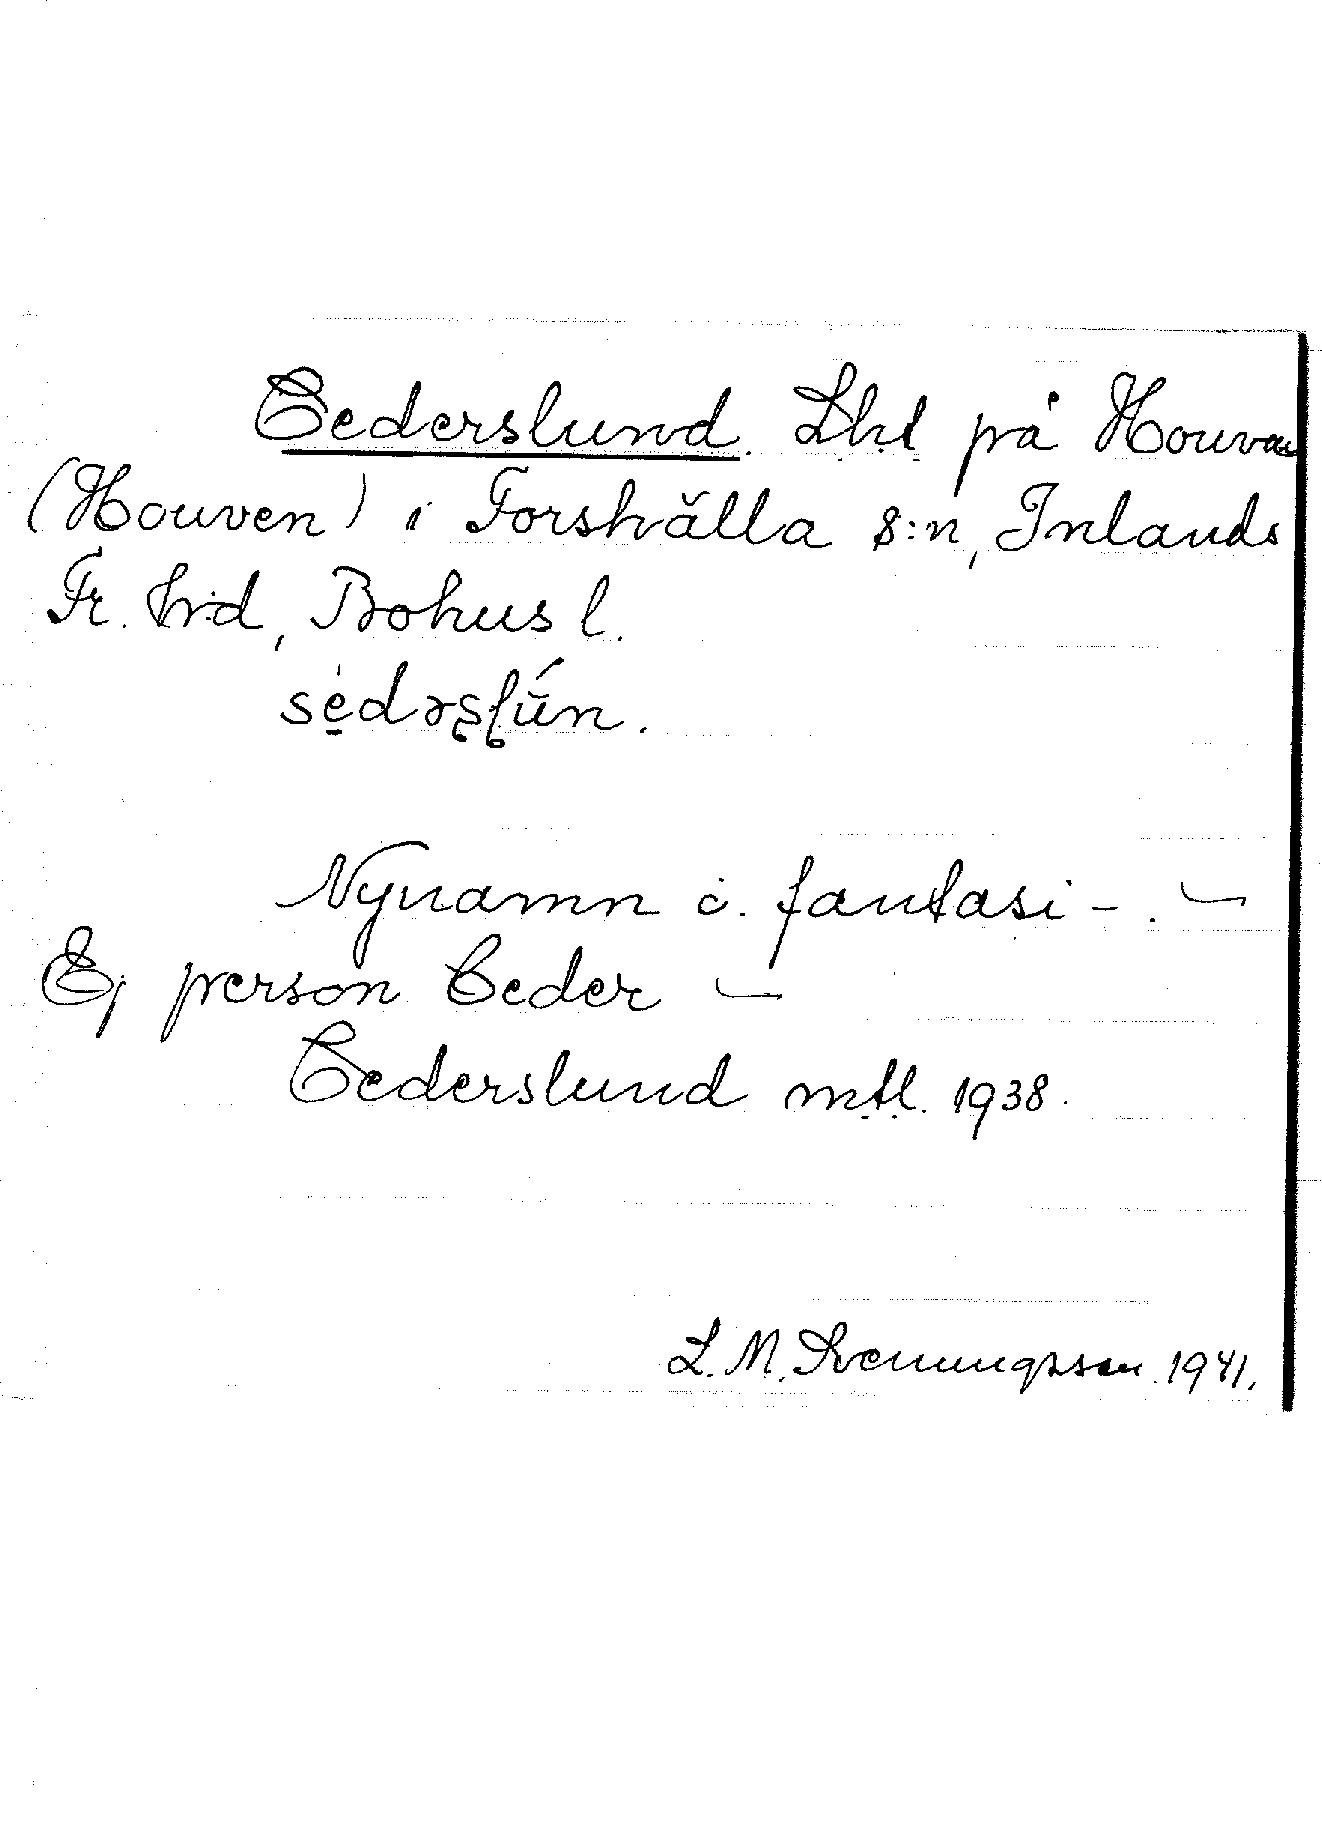 Cederslund. Lht på Houvan
(Houven) i Forshälla s:n, Inlands
Fr. hrd, Bohus l.
sedəʂɭún.
Nynamn o. fantasi - .
Ej person Ceder
Cederslund mtl. 1938.
L. M. Svenungsson 1941.